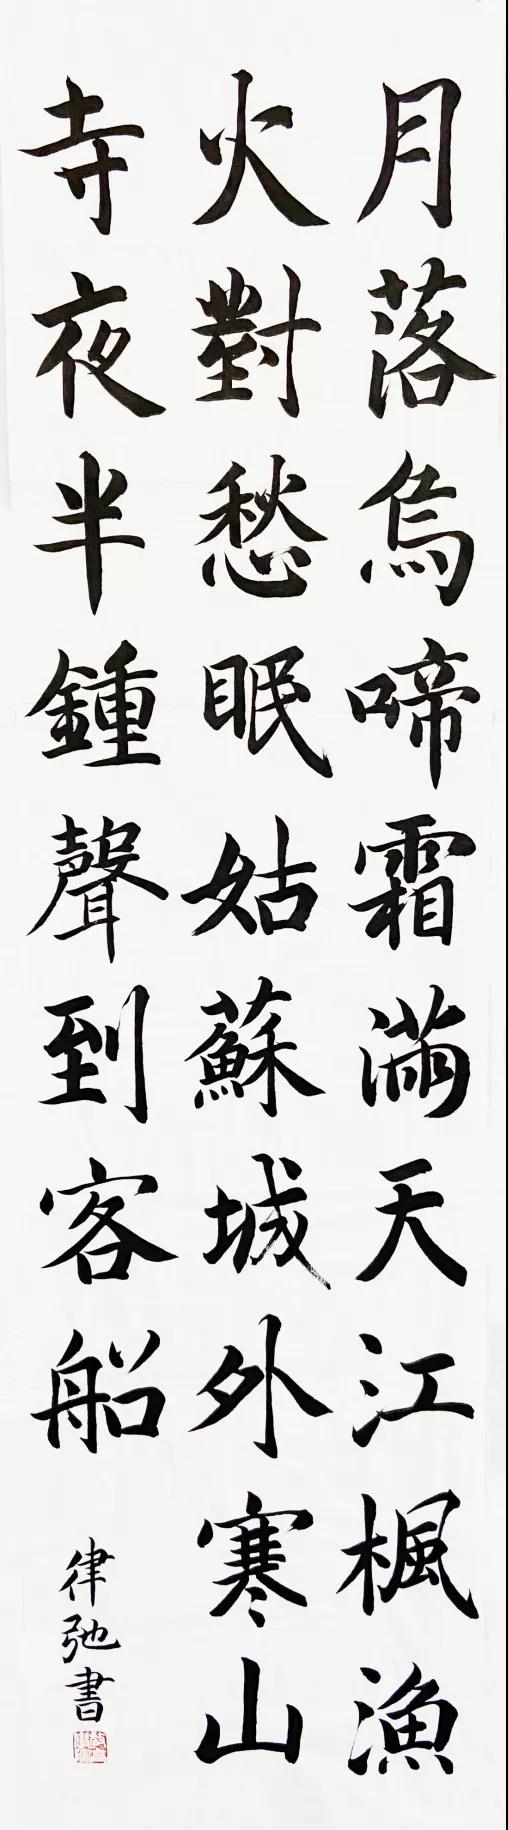 月落烏啼霜滿天江楓漁
火對愁眠姑蘇城外寒山
寺夜半鍾聲到客船
律弛書